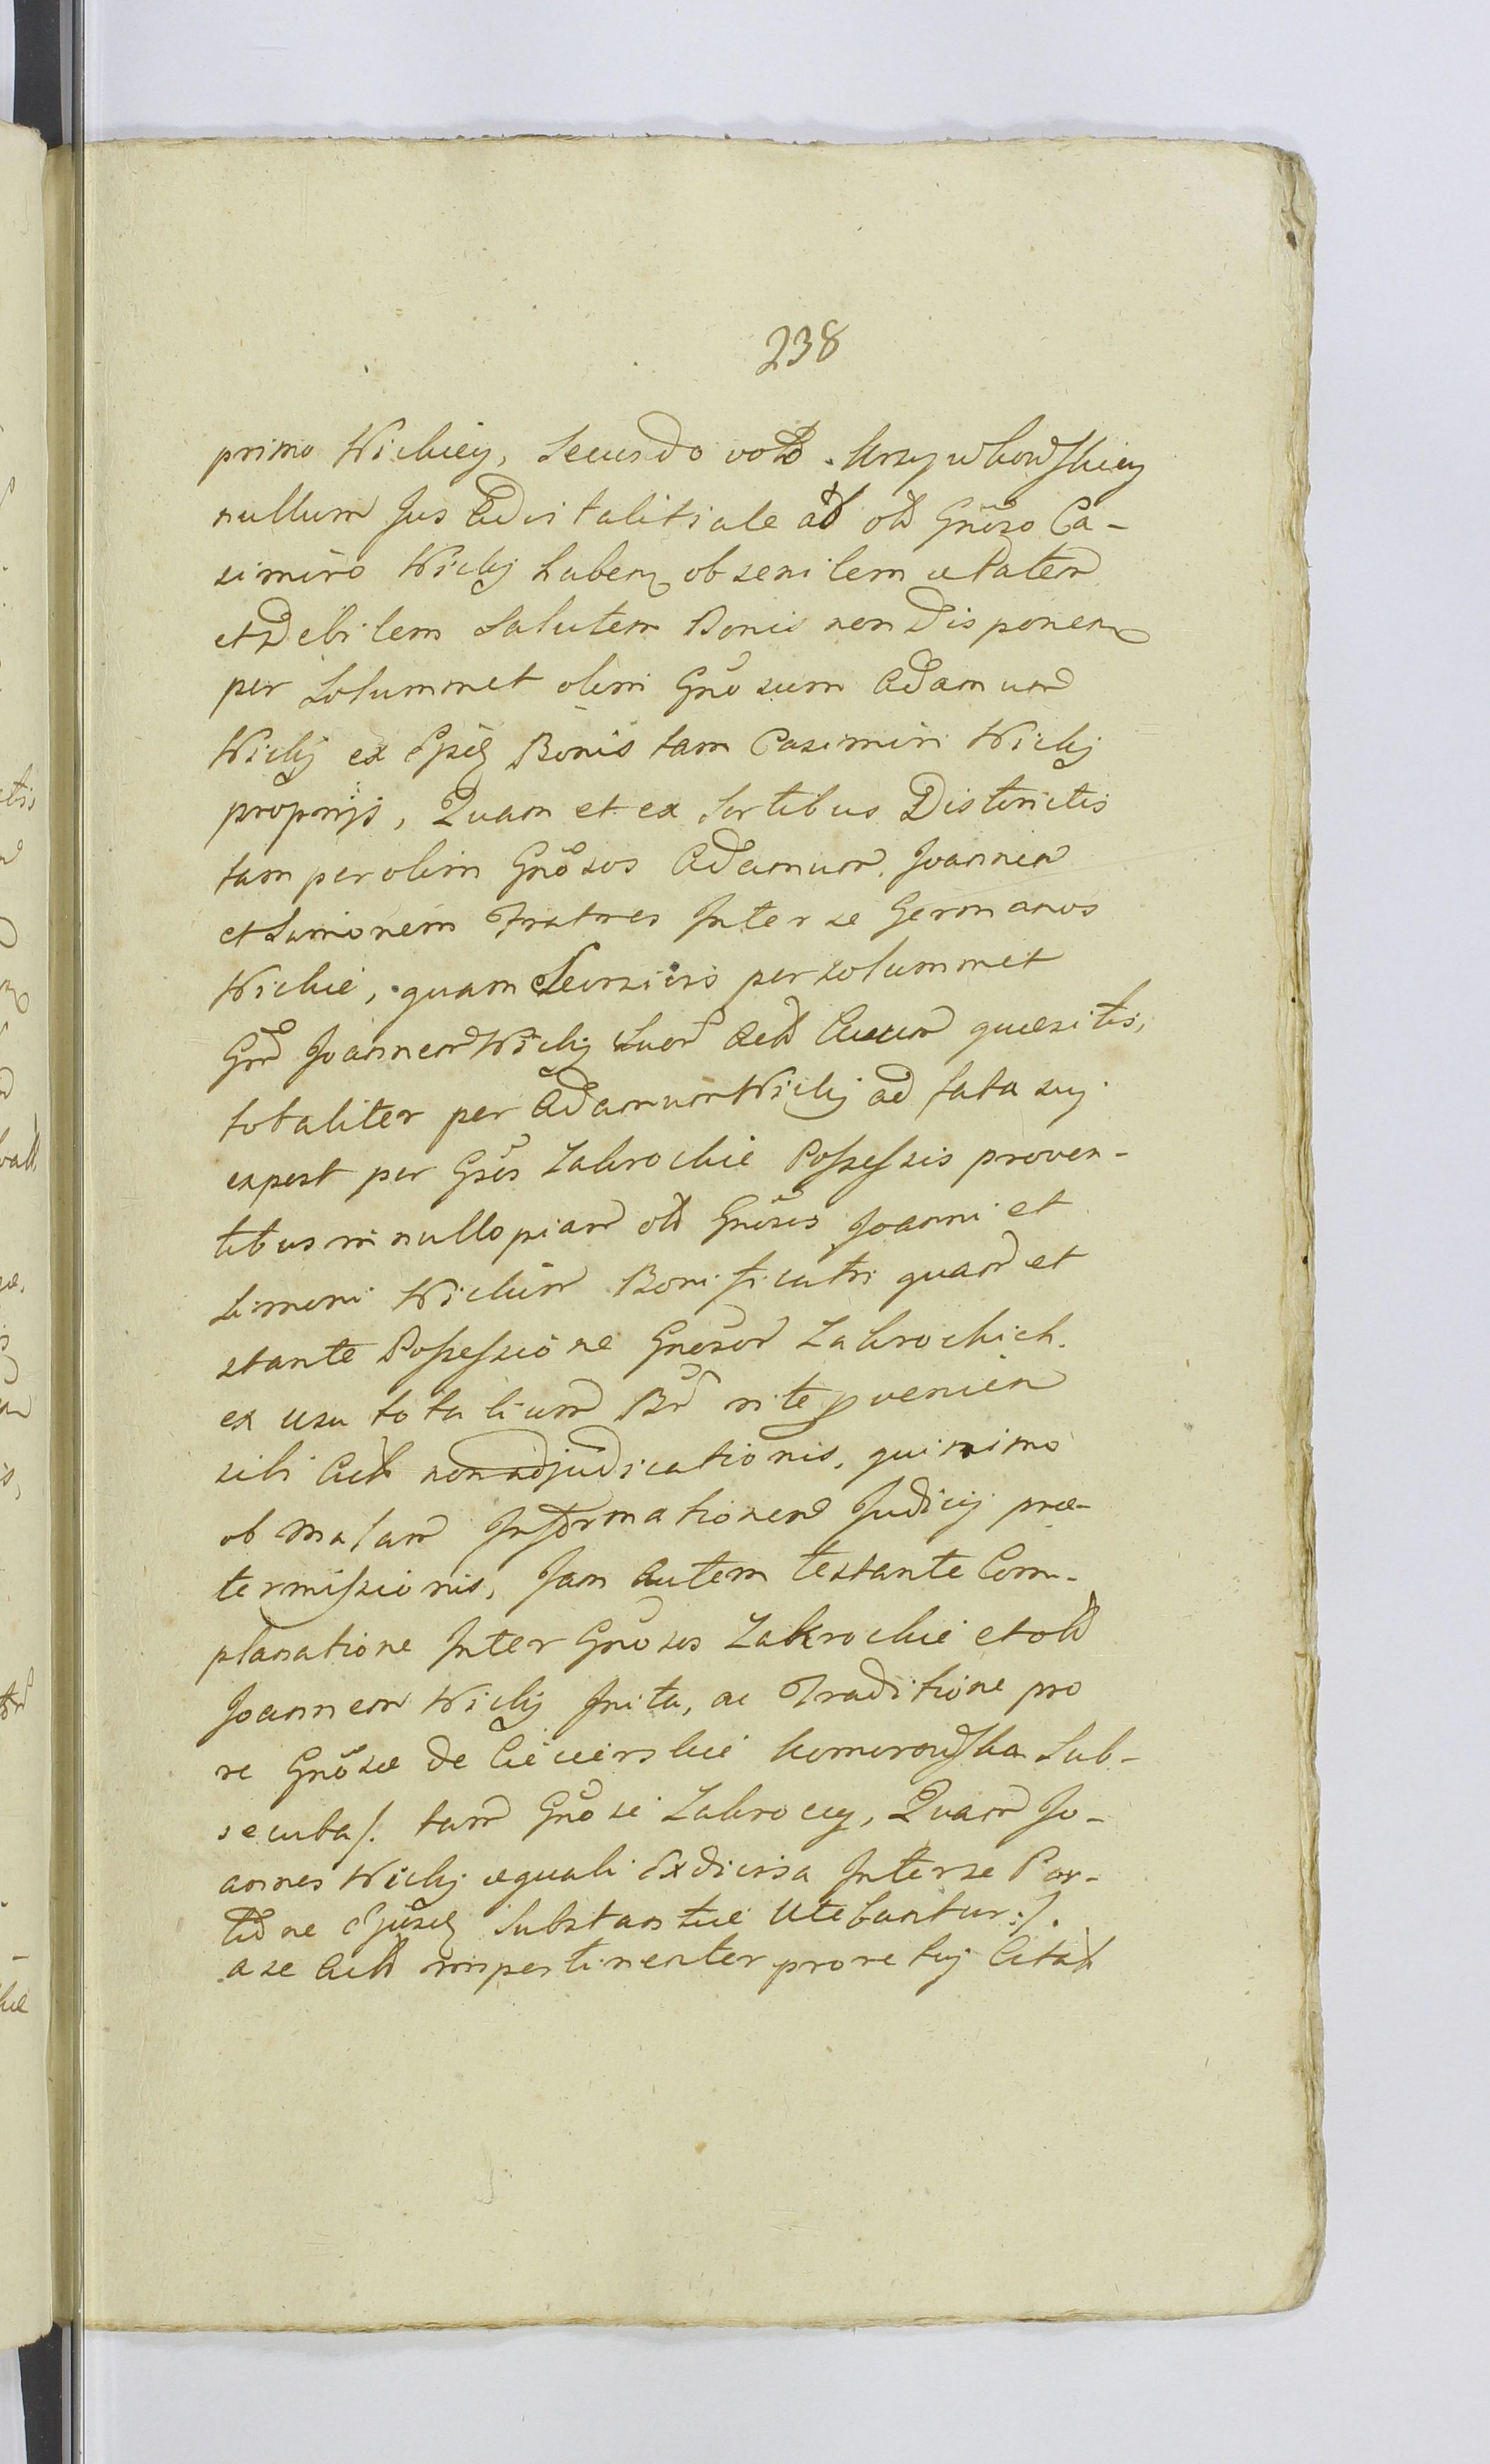 238
primo Wickiey, Secundo voto Krzywkowskiey
nullum Jus Advitalitiale ad old Gnoso Ca-
simiro Wicky haben ob senilem ætatem
et Debilem Salutem Bonis non Disponen
per Solummet olim Gnosum Adamum
Wicky ex Ejsd Bonis tam Casimiri Wicky
proprijs, Quam et ex Sortibus Districtis
tam per olim Gnosos Adamum, Joannem
et Simonem Fratres Inter se Germanos
Wickie, quam Seorsivis per solummet
Gnd Joannem Wicky quæsitis,
totaliter per Adamum Wicky ad fata suj
expost per Gsos Zakrockie Possessis proven-
tibus in nullo old Gnosis Joanni et
Simoni Wickim Bonificatis quam et
stante Possessione Gnosor Zakrockich.
ex usu totalium Br rite pvenien
sibi non adjudicationis, quinimo
ob malam Informationem Judicij præ-
termissionis, Jam autem testante Com-
planatione Inter Gnosos Zakrockie et old
Joannem Wicky Inita, ac Traditione pro
re Gnosæ de Ciecierskie Komorowska Sub-
secuta/. tam Gnosi Zakroccy, Quam Jo-
annes Wicky æquali Exdivisa Inter se Por-
tione Ejusd Substantiæ Utebantur:/.
a se impertinenter pro re suj Citat